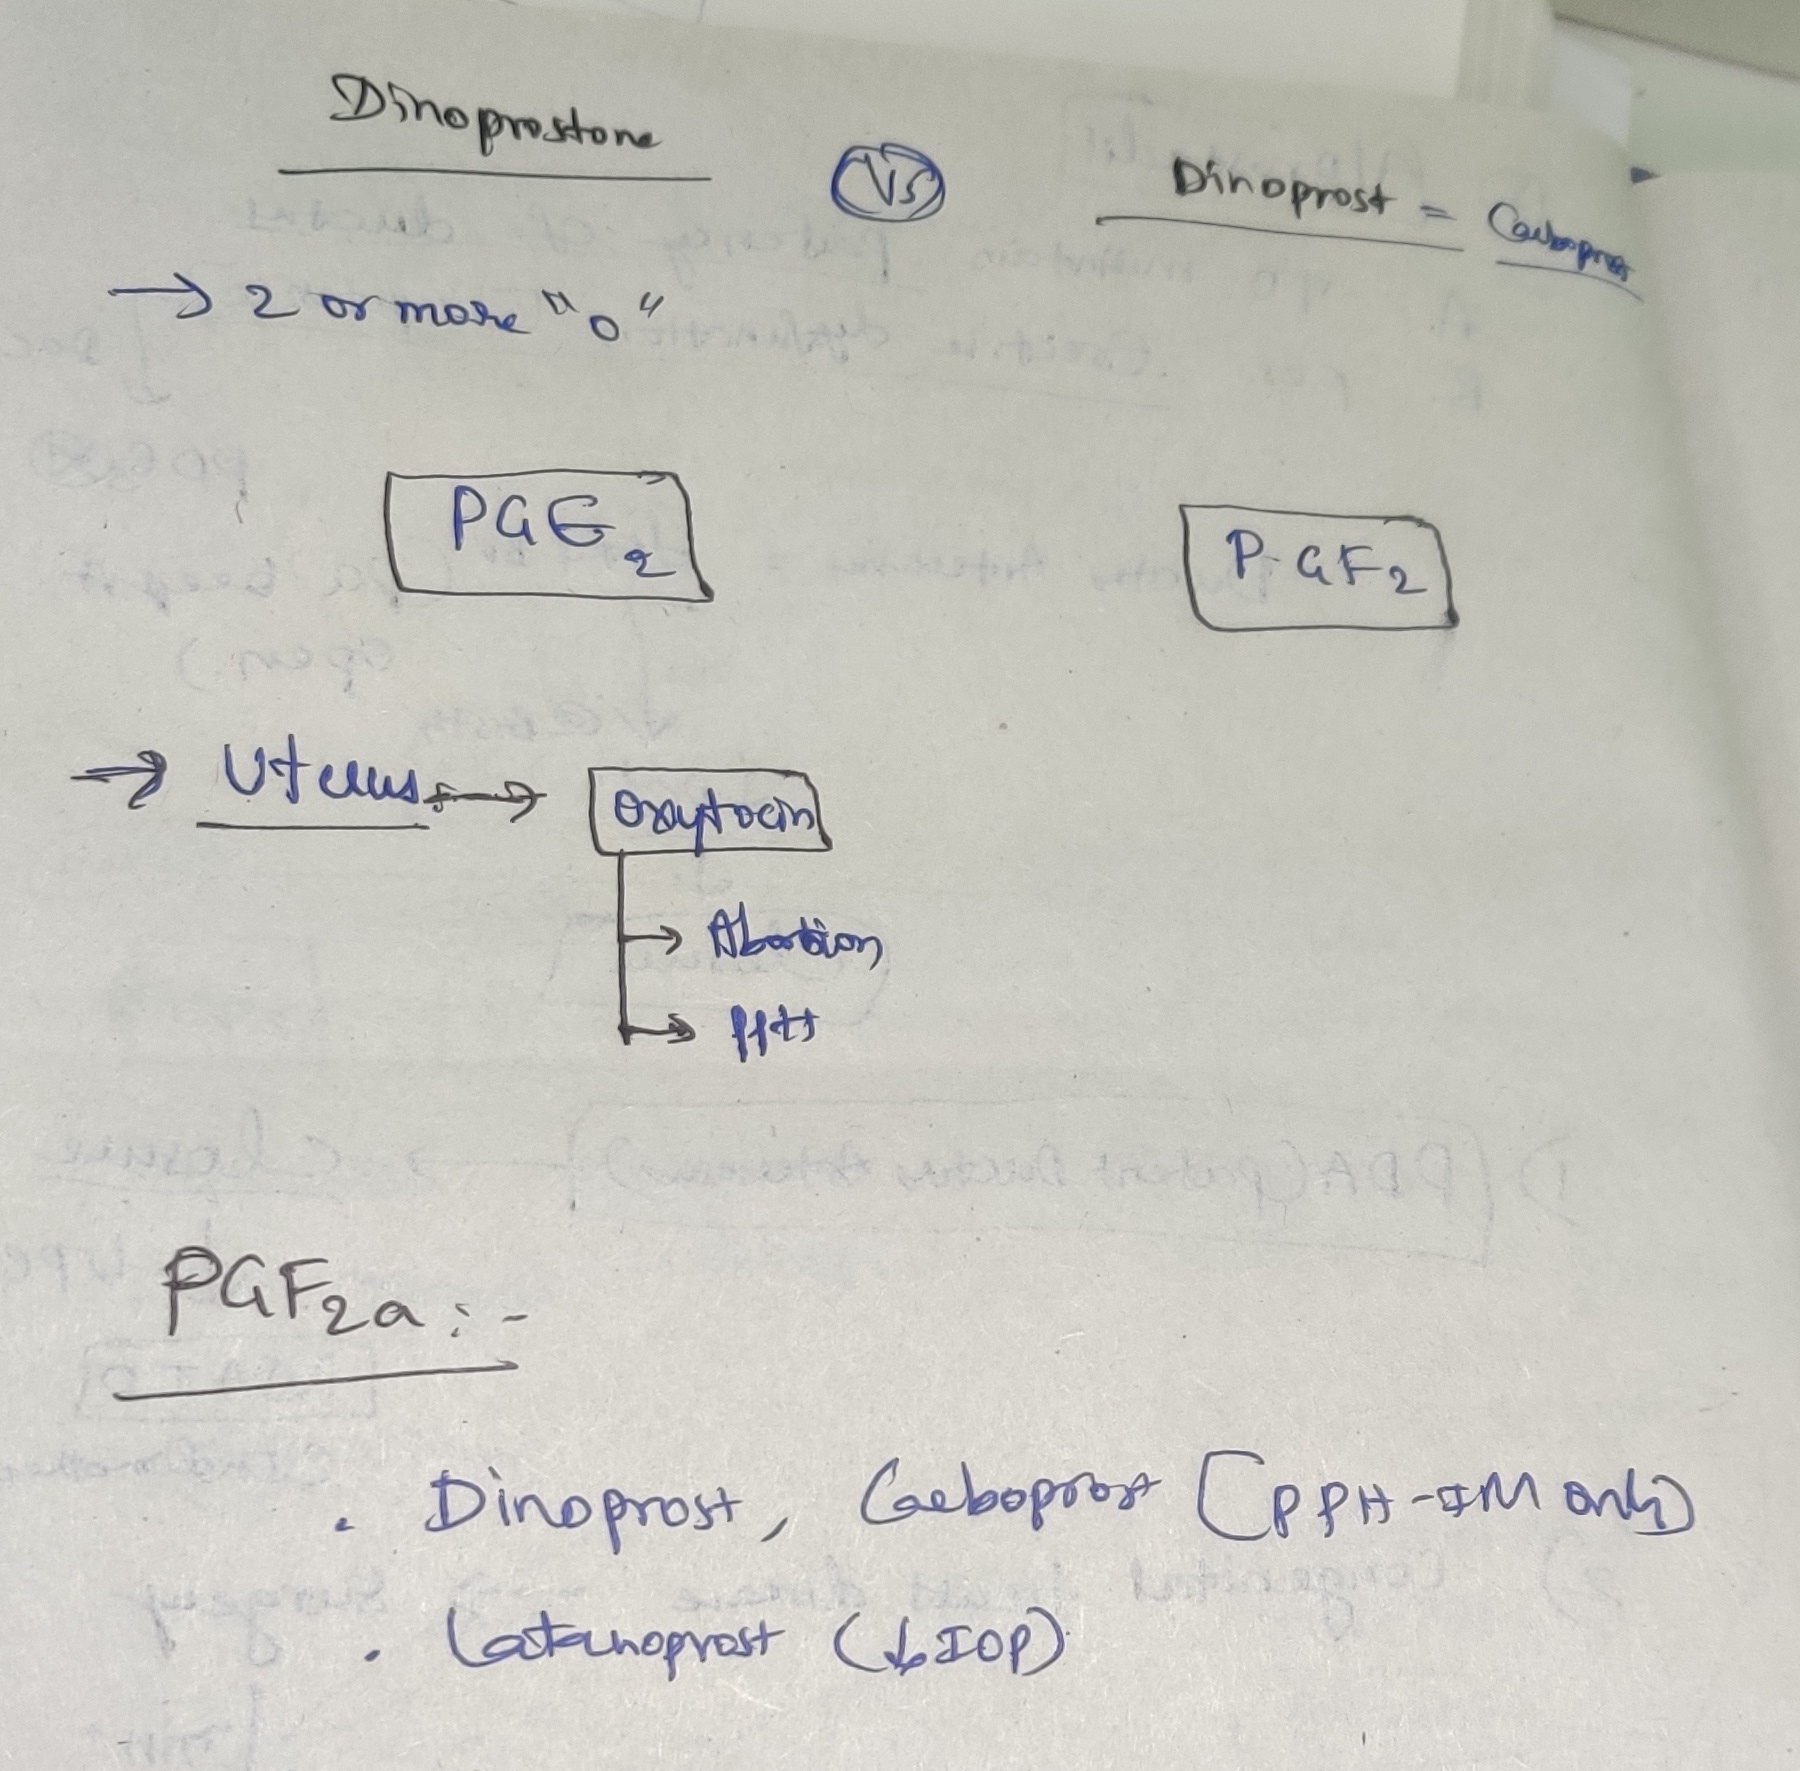 Dinoprostone
Vs
Dinoprost = Carboprost
→ 2 or more "o"
PGE2
PGF2
→ Uterus → Oxytocin
→ Abortion
→ PPH
PGF2a :-
. Dinoprost, Carboprost [PPH-IM only]
. Latanoprost (↓IOP)